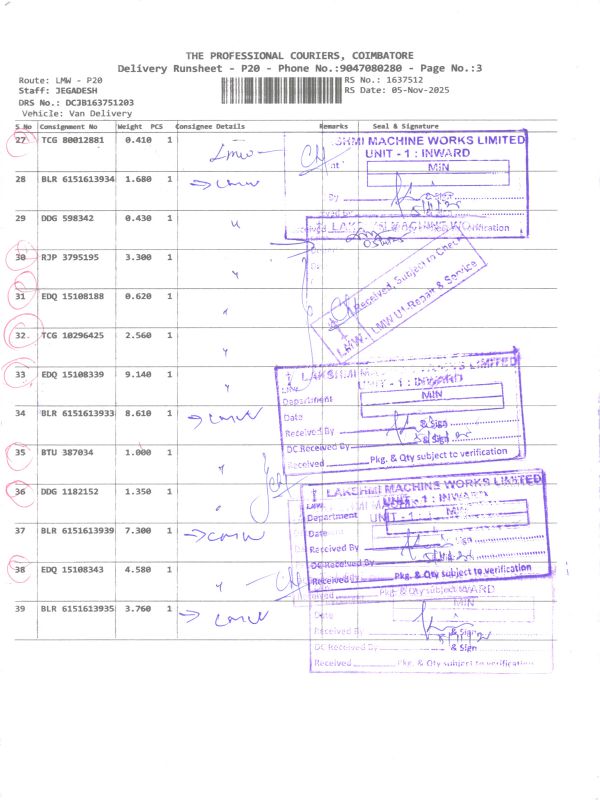 THE PROFESSIONAL COURIERS, COIMBATORE
Delivery Runsheet - P20 - Phone No.:9047080280 - Page No.:3
Route: LMW - P20
RS No.: 1637512
Staff: JEGADESH
RS Date: 05-Nov-2025
DRS No.: DCJB163751203
Vehicle: Van Delivery
S No Consignment No Weight PCS Consignee Details Remarks Seal & Signature
27 TCG 80012881 0.410 1 Lmw
28 BLR 6151613934 1.680 1 → LMW
29 DDG 598342 0.430 1 "
30 RJP 3795195 3.300 1 "
31 EDQ 15108188 0.620 1 "
32 TCG 10296425 2.560 1 "
33 EDQ 15108339 9.140 1 "
34 BLR 6151613933 8.610 1 → LMW
35 BTU 387034 1.000 1 "
36 DDG 1182152 1.350 1 "
37 BLR 6151613939 7.300 1 → LMW
38 EDQ 15108343 4.580 1 "
39 BLR 6151613935 3.760 1 → LMW
LAKSHMI MACHINE WORKS LIMITED
UNIT - 1 : INWARD
MIN
By
Received, Subject to Check
LMW U1-Repair & Service
LAKSHMI MACHINE WORKS LIMITED
UNIT - 1 : INWARD
Department MIN
Date
Received By & Sign
DC Received By
Received Pkg. & Qty subject to verification
LAKSHMI MACHINE WORKS LIMITED
UNIT - 1 : INWARD
Department
Date
Received By Sign
DC Received By
Received Pkg. & Qty subject to verification
Pkg. & Qty subject to
MIN
Date
Received By & Sign
DC Received By & Sign
Received Pkg. & Qty subject to verification